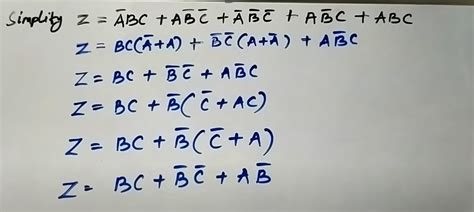 Simplity Z = A̅BC + AB̅C̅ + A̅B̅C̅ + AB̅C + ABC
Z = BC(A̅+A) + B̅C̅(A+A̅) + AB̅C
Z = BC + B̅C̅ + AB̅C
Z = BC + B̅(C̅ + AC)
Z = BC + B̅(C̅ + A)
Z = BC + B̅C̅ + AB̅